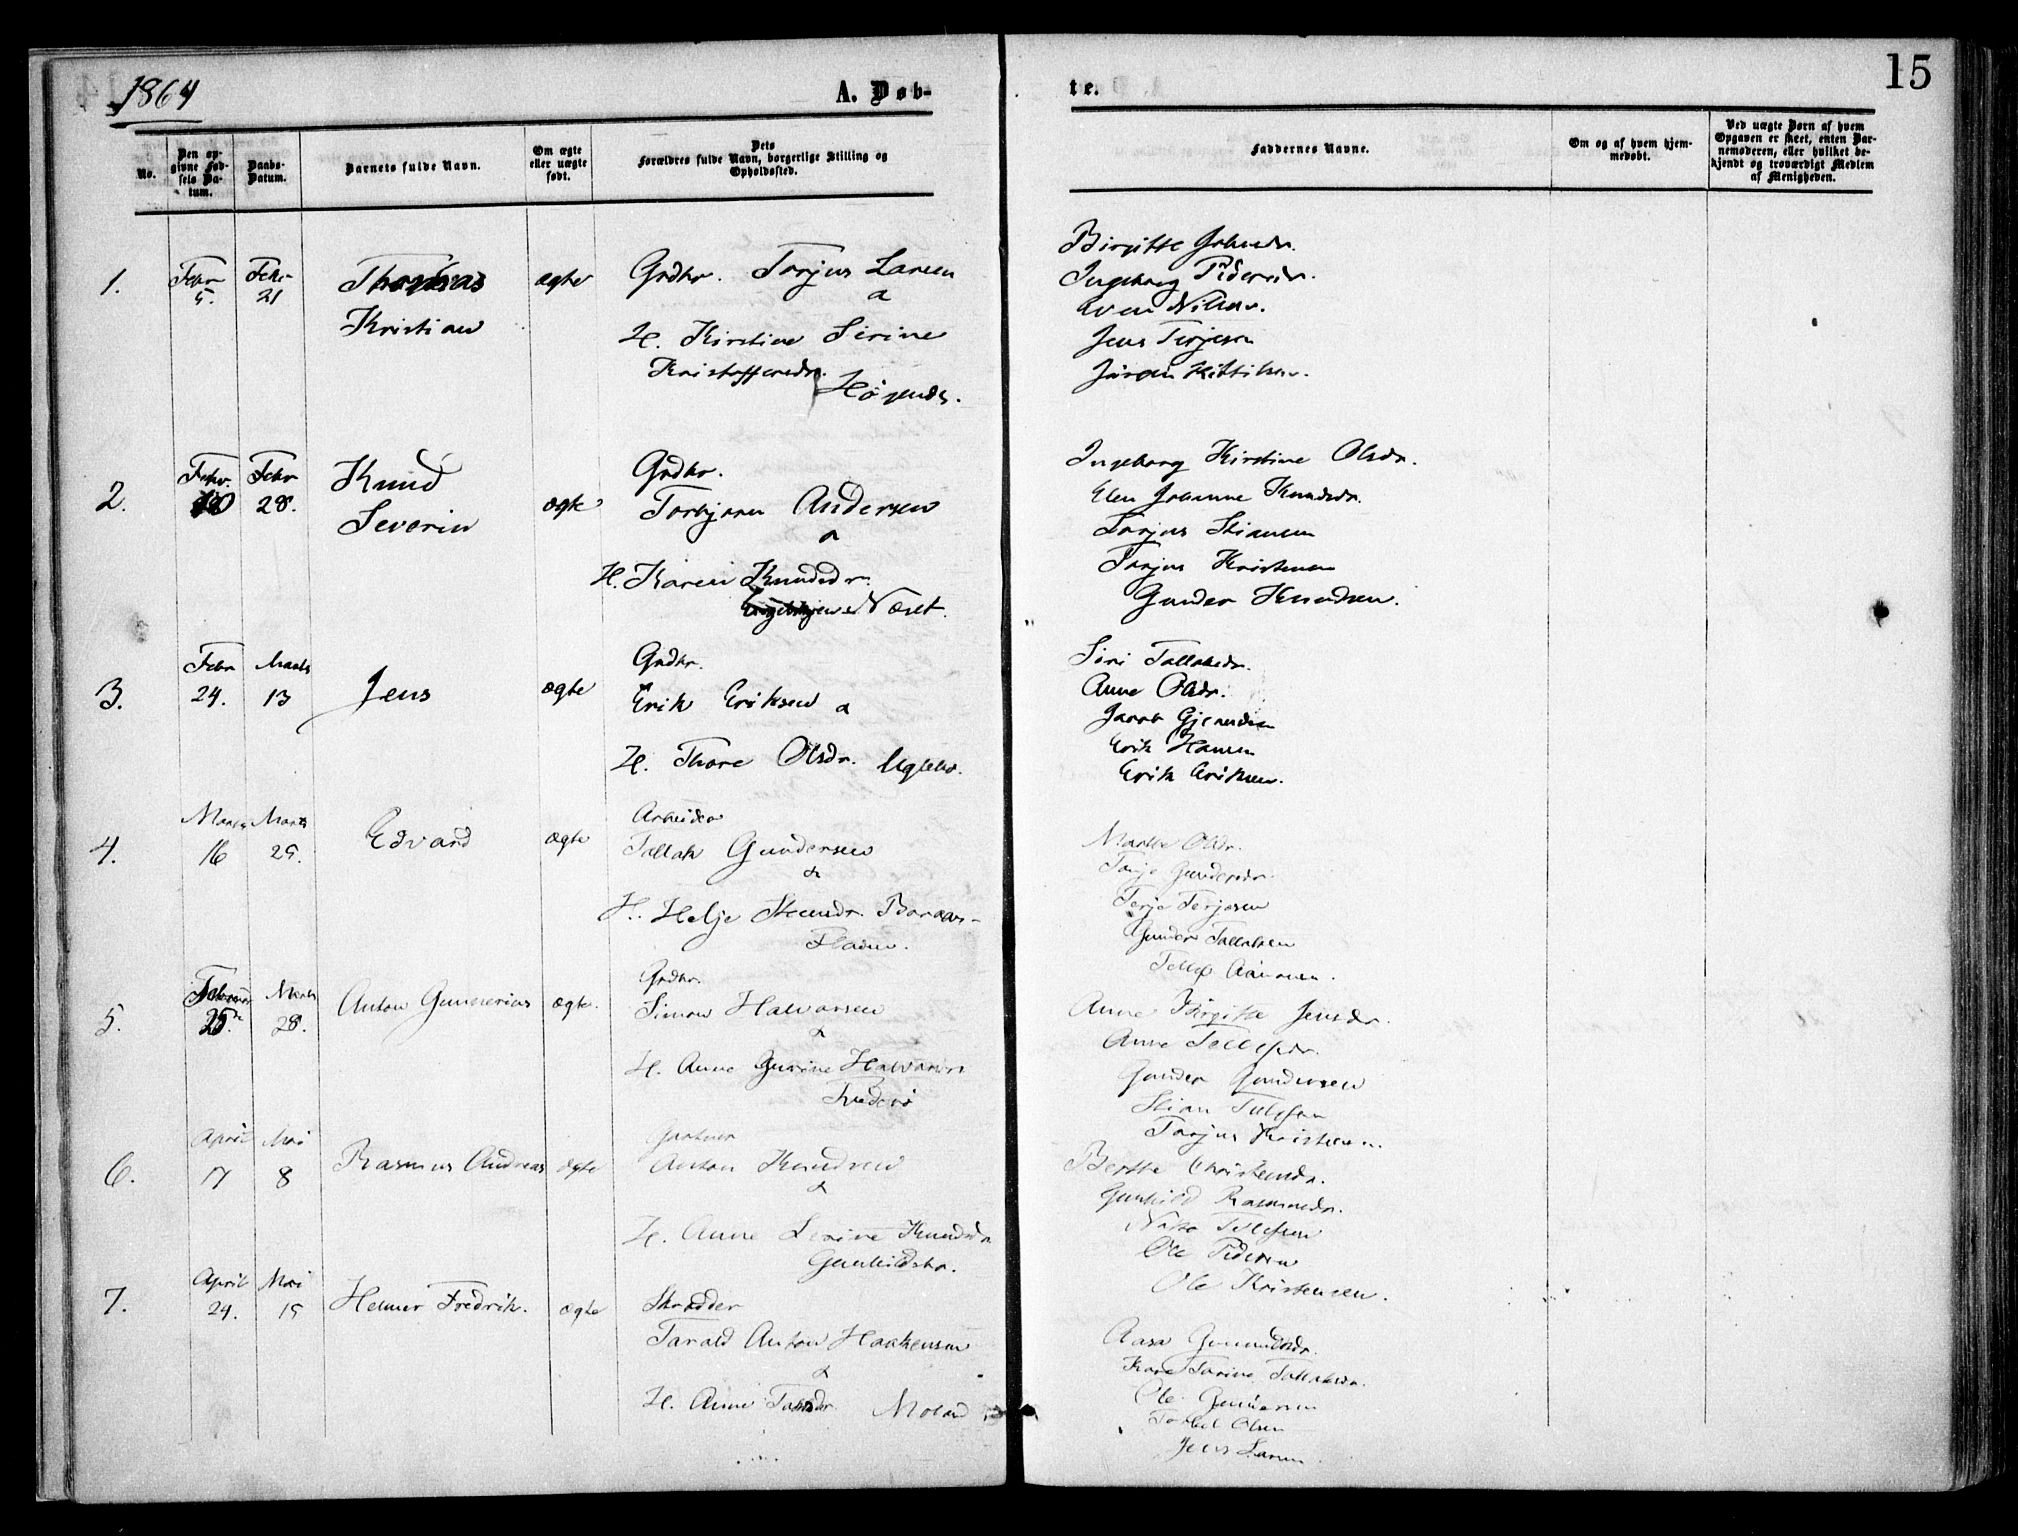 1864
A. Døb-
te.
15
No.
Den op-
givne Fød-
sels Da-
tum.
Daabs-
Datum.
Barnets fulde Navn.
Om ægte
eller uægte
født.
Dets
Forældres fulde Navn, borgerlige Stilling og
Opholdssted.
Faddernes Navne.
Om og af hvem hjem-
medøbt.
Ved uægte Børn af hvem
Opgaven er skeet, enten Bar-
nemoderen, eller hvilket be-
kjendt og troværdigt Medlem
af Menigheden.
1.
Febr
5.
Febr
21
Thomas
Kristian
ægte
Grdbr. Torjus Larsen
&
H. Kirstine Serine
Kristoffersdr.
Birgitte
Ingeborg Pedersdr.
Even Nilsen.
Jens Terjesen
Jøran Kittilsen.
2.
Febr.
Febr
28.
Knud
Severin
ægte
Grdbr.
Torbjørn Andersen
&
H. Karen Knudsdr.
Næset.
Ingeborg Kirstine Olsdr.
Elen Johanne Knudsdr.
Torjus Stiansen
Torjus Kristensen
Gunder Knudsen.
3.
Febr
24.
Marts
13
Jens
ægte
Grdbr.
Erik Eriksen &
H. Thore Olsdr. Uglebo.
Siri Tallaksdr.
Anne Olsdr.
Jacob
Erik Hansen
Erik Eriksen.
4.
Marts
16
Marts
25.
Edvard
ægte
Arbeider
Tallak Gundersen
&
H. Helje
Marthe Olsdr.
Gundersdr.
Terje Terjesen
Gunder Tallaksen
5.
Februar
25.
Marts
28.
Anton Gunnerius
ægte.
Grdbr.
Simon Halvorsen
&
H. Anne Gurine Halvorsdr
Anne Birgitte Jensdr.
Anne Tellefsdr.
Gunder Gundersen
Stian Tellefsen
Torjus Kristensen.
6.
April
17
Mai
8
Rasmus Andreas
ægte
Anton Knudsen
&
H. Anne Serine Knudsdr
Gunhildsbo.
Berthe Christensdr.
Gunhild Rasmusdr.
Tellefsen
Ole Pedersen
Ole Kristensen.
7.
April
24.
Mai
15
Helmer Fredrik.
ægte
Skrædder
Tarald Anton Haakensen
&
H. Anne
Moland
Aasa Gunnuldsdr.
Karen Torine Tallaksdr.
Ole Gundersen
Olsen
Jens Larsen